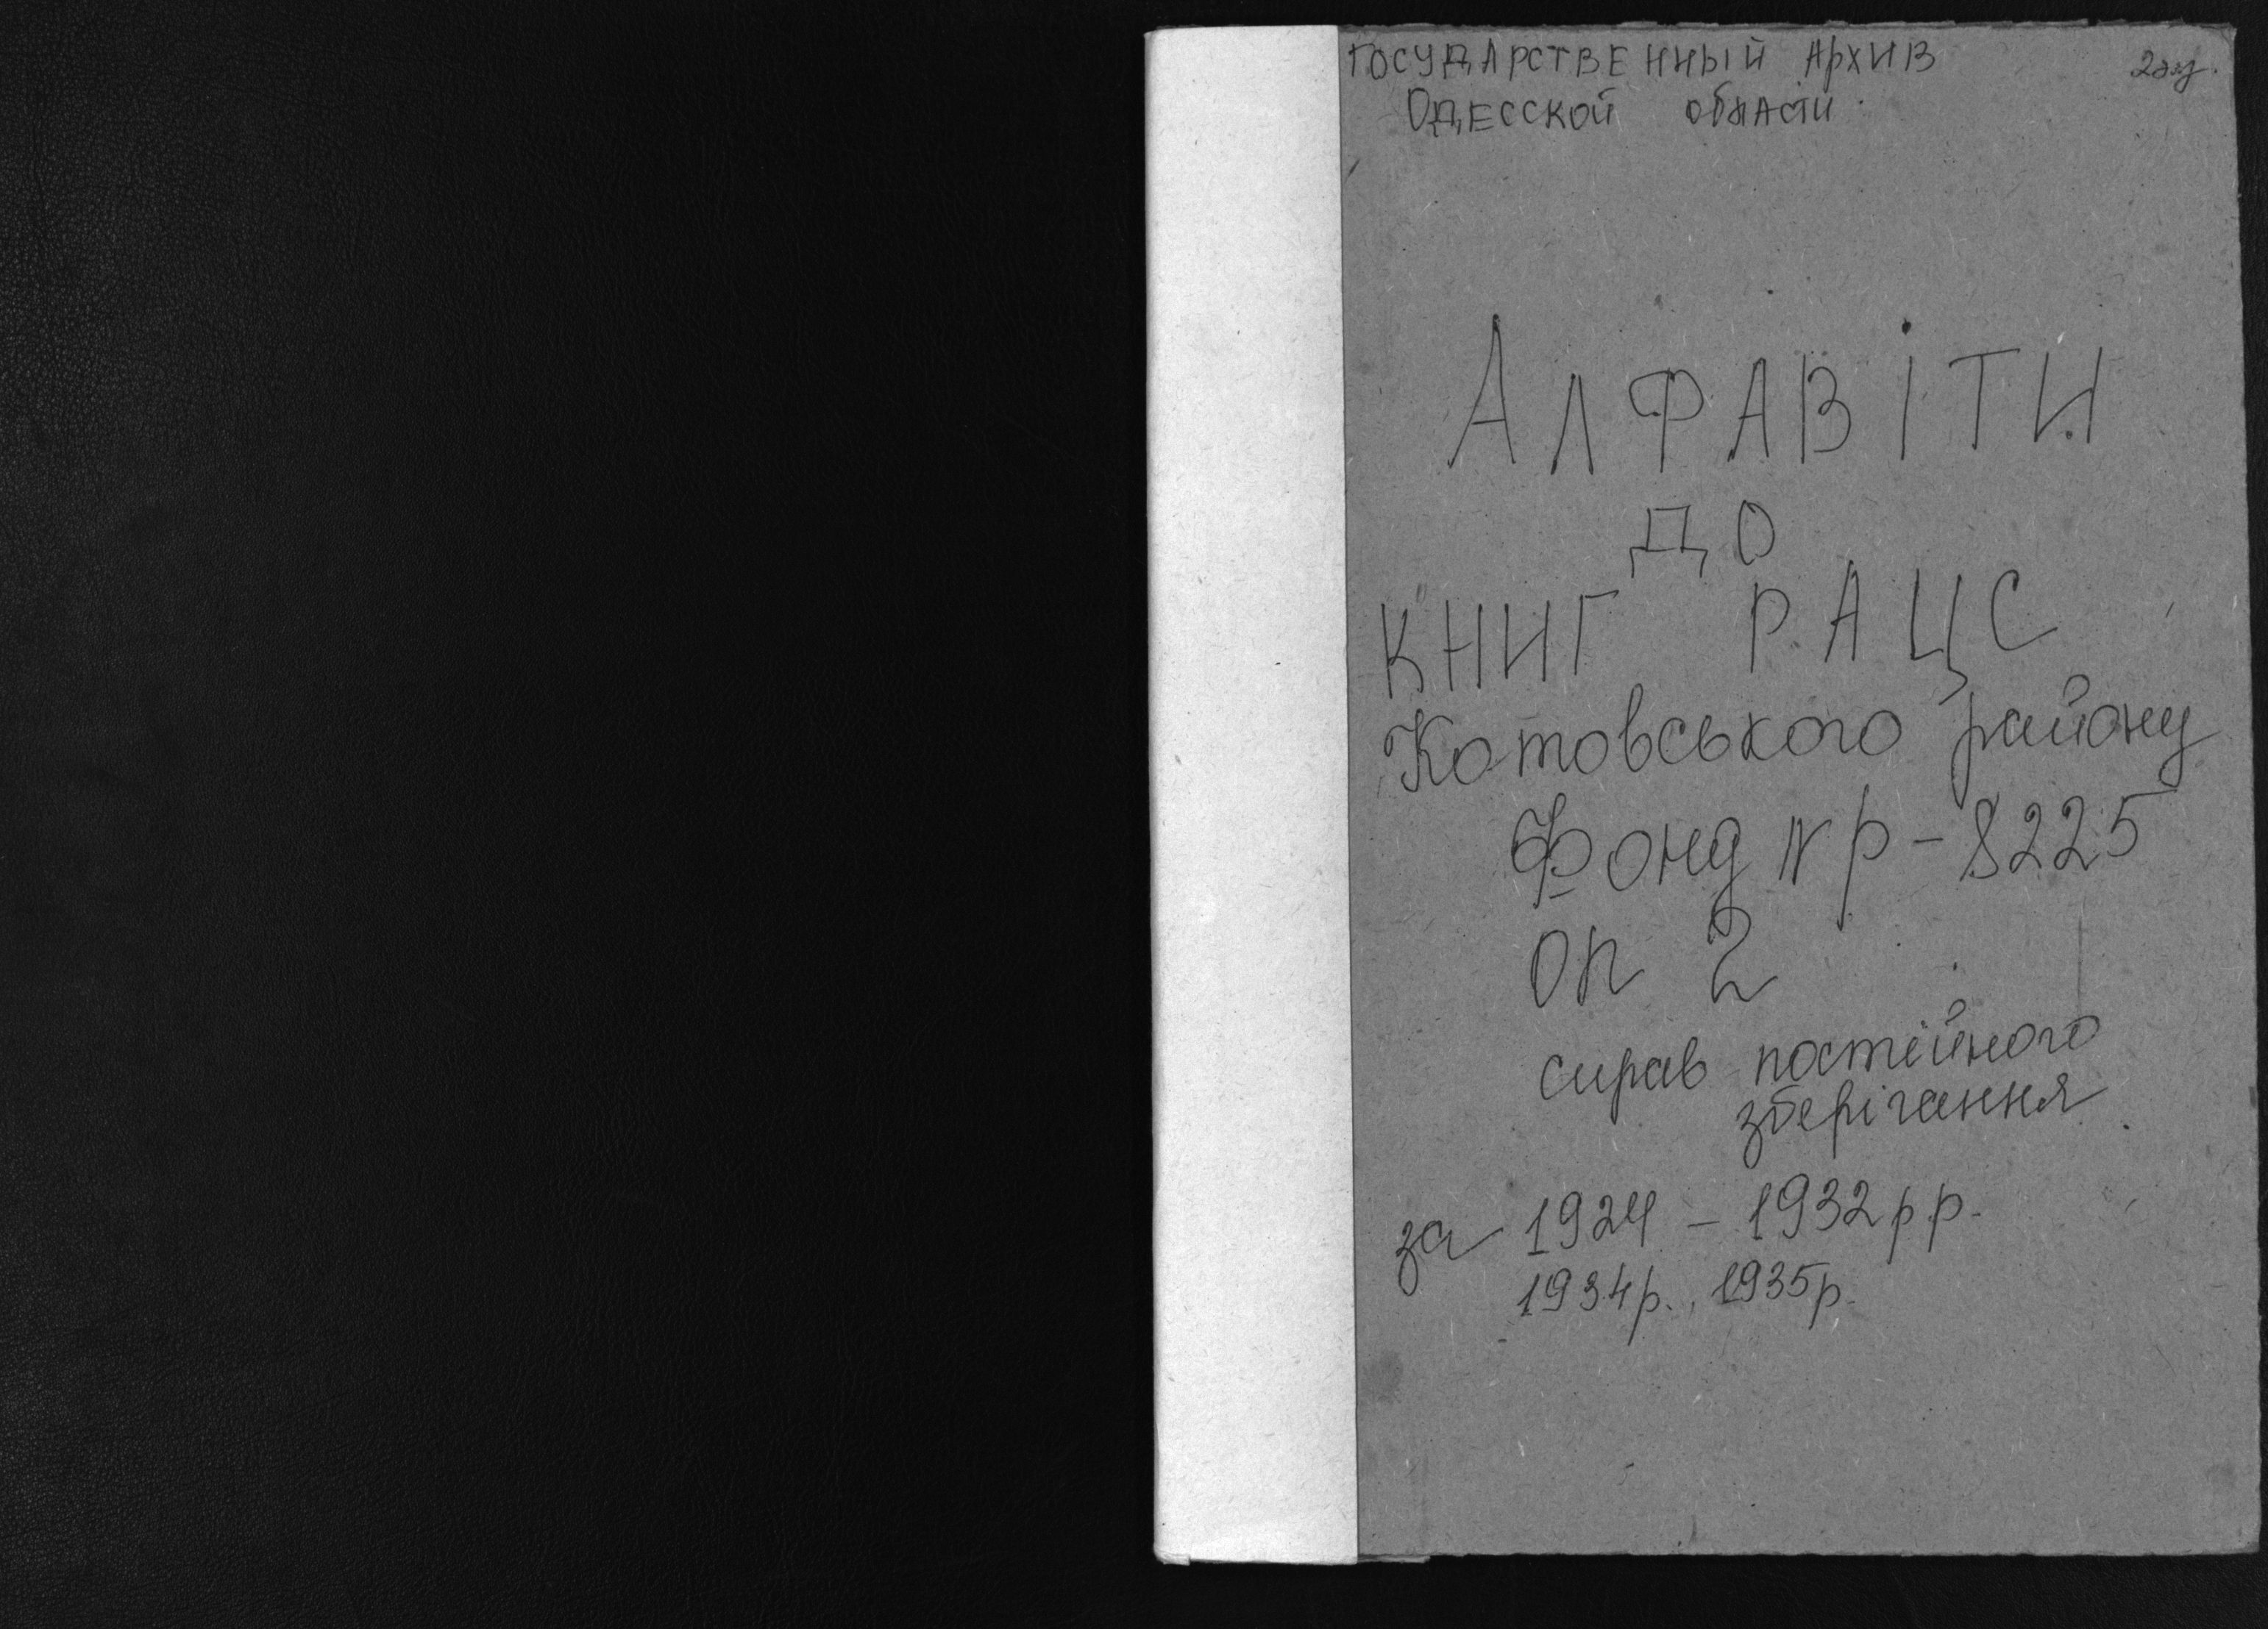 ГОСУДАРСТВЕННЫЙ АРХИВ
2 экз.
ОДЕССКОЙ ОБЛАСТИ
АЛФАВІТИ
ДО
КНИГ РАЦС
Котовського району
Фонд N р-8225
оп 2
справ постійного
зберігання
за 1924 - 1932 р р.
1934р., 1935р.